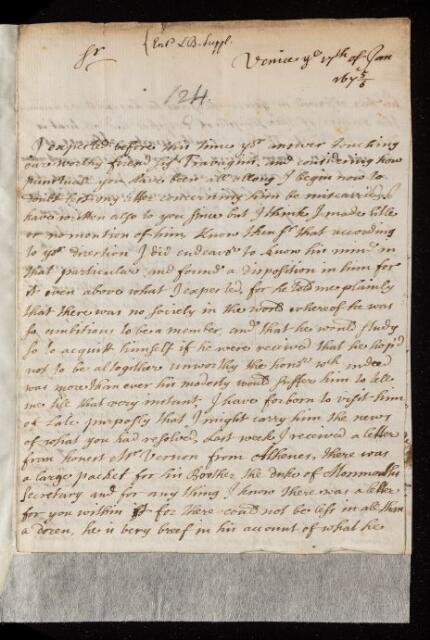 Sr
Entd LB. Suppl.
Venice ye 17th of Jan
167 5/6
124
I expected before this time yor answer touching
our worthy friend Sigr Travagini, and considering how
punctuall you have been all along I begin now to
doubt lest my letter concerning him be miscaried, I
have written also to you since but I think I made litle
or no mention of him, Know then Sr that according
to yor direction I did endeavor to know his mind in
that particular, and found a disposition in him for
it even above what I expected, for he told me plainly
that there was no society in the world whereof he was
so ambitious to be a member, and that he would study
so to acquitt himself if he were received that he hop'd
not to be altogether unworthy the honor wch indeed
was more than ever his modesty would suffer him to tell
me till that very instant. I have forborn to visit him
of late purposly that I might carry him the news
of what you had resolved. Last week I received a letter
from honest Mr Vernon from Athenes, there was
a large packet for his Brother the duke of Monmouths
Secretary and for any thing I know there was a letter
for you within it for there could not be less in all then
a dozen, he is very breef in his account of what he